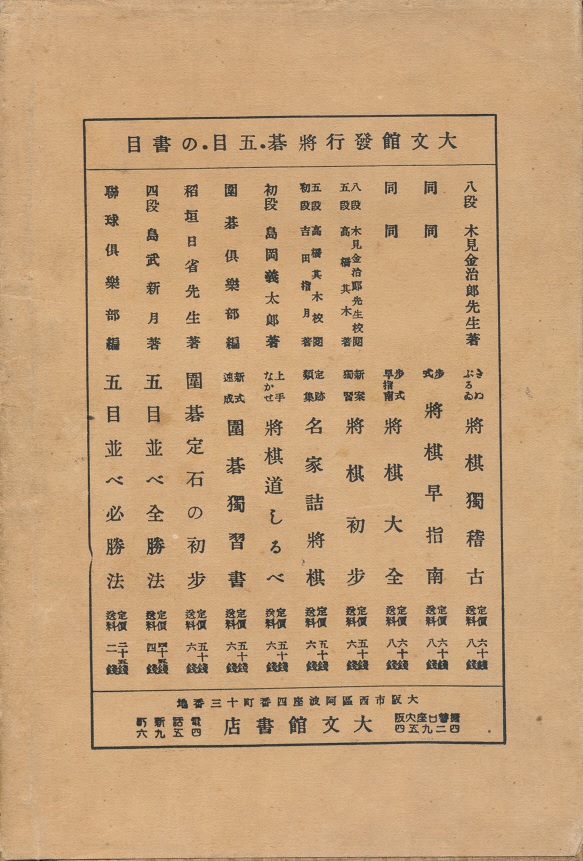 大文館發行將碁・五目・の書目
八段 木見金治郎先生著 きぬぶるゐ 將棋獨稽古 定價六十錢 送料八錢
同 同 歩式 將棋早指南 定價六十錢 送料八錢
同 同 歩式早指南 將棋大全 定價六十錢 送料八錢
八段 木見金治郎先生校閲 五段 高橋其木著 新案獨習 將棋初歩 定價五十錢 送料六錢
五段 高橋其木校閲 初段 吉田指月著 定跡類集 名家詰將棋 定價五十錢 送料六錢
初段 島岡義太郎著 上手なかせ 將棋道しるべ 定價五十錢 送料六錢
圍碁倶樂部編 新式速成 圍碁獨習書 定價五十錢 送料六錢
稻垣日省先生著 圍碁定石の初歩 定價五十錢 送料六錢
四段 島武新月著 五目並べ全勝法 定價 送料四錢
聯球倶樂部編 五目並べ必勝法 定價二十五錢 送料二錢
大阪市西區阿波座四番町十三番地
大文館書店
振替口座大阪四二九五四
電話新町四五九六